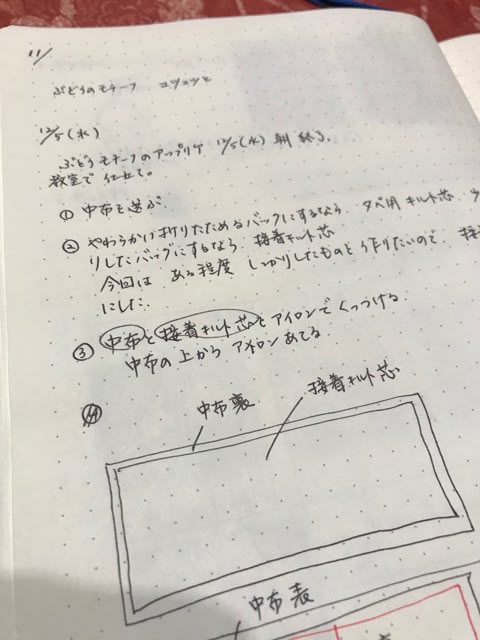 11/
ぶどうのモチーフ コツコツと
12/5(水)
ぶどうモチーフのアップリケ 12/5(水) 朝 終了。
教室で仕立て。
① 中布を選ぶ
② やわらかい折りたためるバックにするなら、タペ用キルト芯、
りしたバッグにするなら、接着キルト芯
今回は ある程度 しっかりしたものを作りたいので、接
にした。
③ 中布と接着キルト芯をアイロンでくっつける
中布の上から アイロンあてる
中布裏
接着キルト芯
中布表